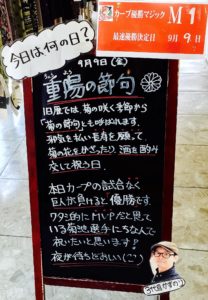 カープ優勝マジック M1
最速優勝決定日 9月9日
今日は何の日?
9月9日(金)
重陽の節句
旧暦では、菊の咲く季節から
「菊の節句」とも呼ばれます。
邪気を払い長寿を願って、
菊の花をかざったり、酒を酌み
交して祝う日。
本日カープの試合なく
巨人が負けると優勝です
ワタシ的にMVPだと思って
いる菊池選手にちなんで
祝いたいと思います!
夜が待ちどおしい